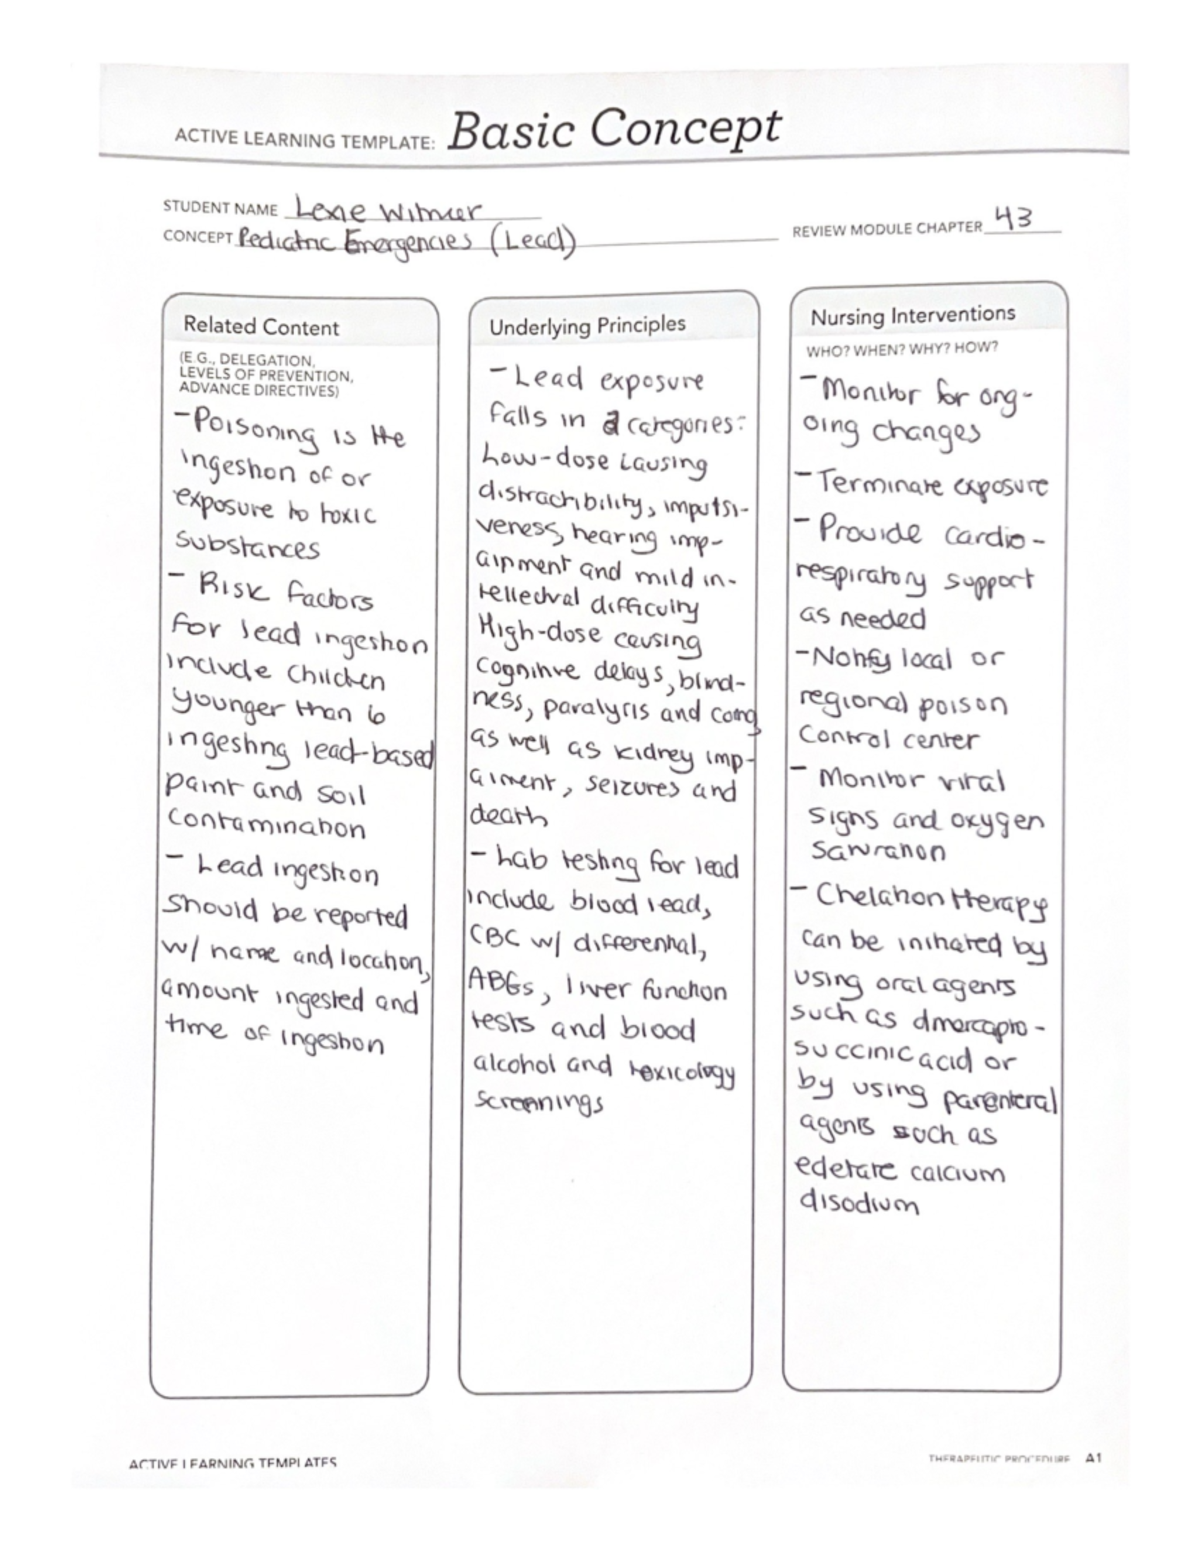 ACTIVE LEARNING TEMPLATE: Basic Concept
STUDENT NAME Lexie Witmer
CONCEPT Pediatric Emergencies (Lead)
REVIEW MODULE CHAPTER 43
Related Content
(E.G., DELEGATION,
LEVELS OF PREVENTION,
ADVANCE DIRECTIVES)
- Poisoning is the
ingestion of or
exposure to toxic
substances
- Risk factors
for lead ingestion
include children
younger than 6
ingesting lead-based
paint and soil
contamination
- Lead ingestion
should be reported
w/ name and location,
amount ingested and
time of ingestion
Underlying Principles
- Lead exposure
falls in 2 categories:
Low-dose causing
distractibility, impulsi-
veness, hearing imp-
airment and mild in-
tellectual difficulty
High-dose causing
cognitive delays, blind-
ness, paralysis and coma,
as well as kidney imp-
airment, seizures and
death
- Lab testing for lead
include blood lead,
CBC w/ differential,
ABGs, liver function
tests and blood
alcohol and toxicology
screenings
Nursing Interventions
WHO? WHEN? WHY? HOW?
- Monitor for ong-
oing changes
- Terminate exposure
- Provide cardio-
respiratory support
as needed
- Notify local or
regional poison
control center
- Monitor vital
signs and oxygen
saturation
- Chelation therapy
can be initiated by
using oral agents
such as dmercapto-
succinic acid or
by using parenteral
agents such as
edetate calcium
disodium
ACTIVE LEARNING TEMPLATES
THERAPEUTIC PROCEDURE A1